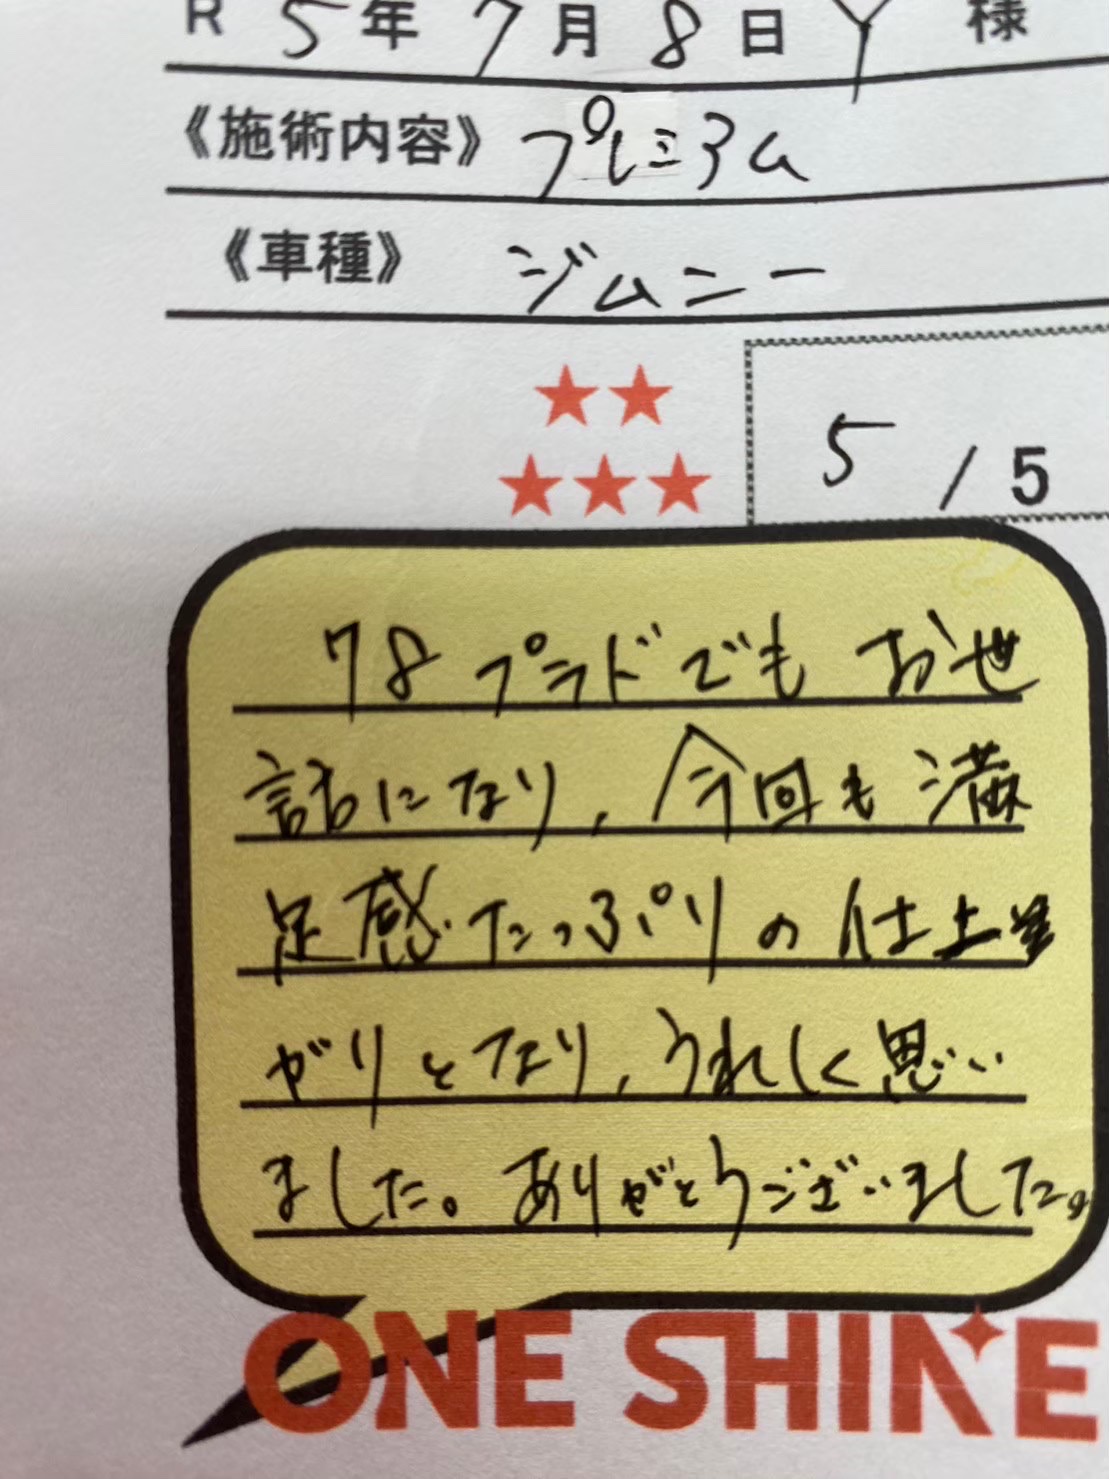 R 5年 7月 8日 Y 様
《施術内容》 プレミアム
《車種》 ジムニー
★★
★★★
5 / 5
78プラドでもお世
話になり、今回も満
足感たっぷりの仕上
がりとなり、うれしく思い
ました。ありがとうございました。
ONE SHINE